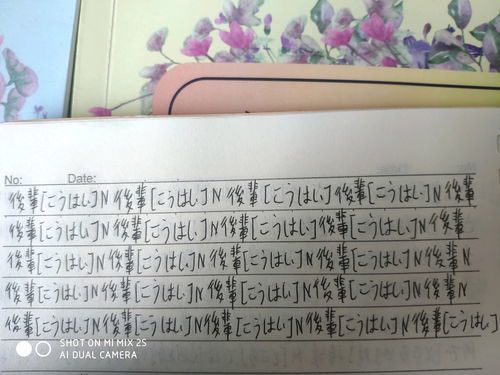 No: Date:
後輩[こうはい]N後輩[こうはい]N後輩[こうはい]後輩[こうはい]N後輩
後輩[こうはい]N後輩[こうはい]N後輩[こうはい]後輩[こうはい]N後輩
後輩[こうはい]N後輩[こうはい]N後輩[こうはい]N後輩[こうはい]N後輩N
後輩[こうはい]N後輩[こうはい]N後輩[こうはい]N後輩[こうはい]N後輩N
後輩[こうはい]N後輩[こうはい]N後輩[こうはい]N後輩[こうはい]N後輩[こうはい]
SHOT ON MI MIX 2S
AI DUAL CAMERA